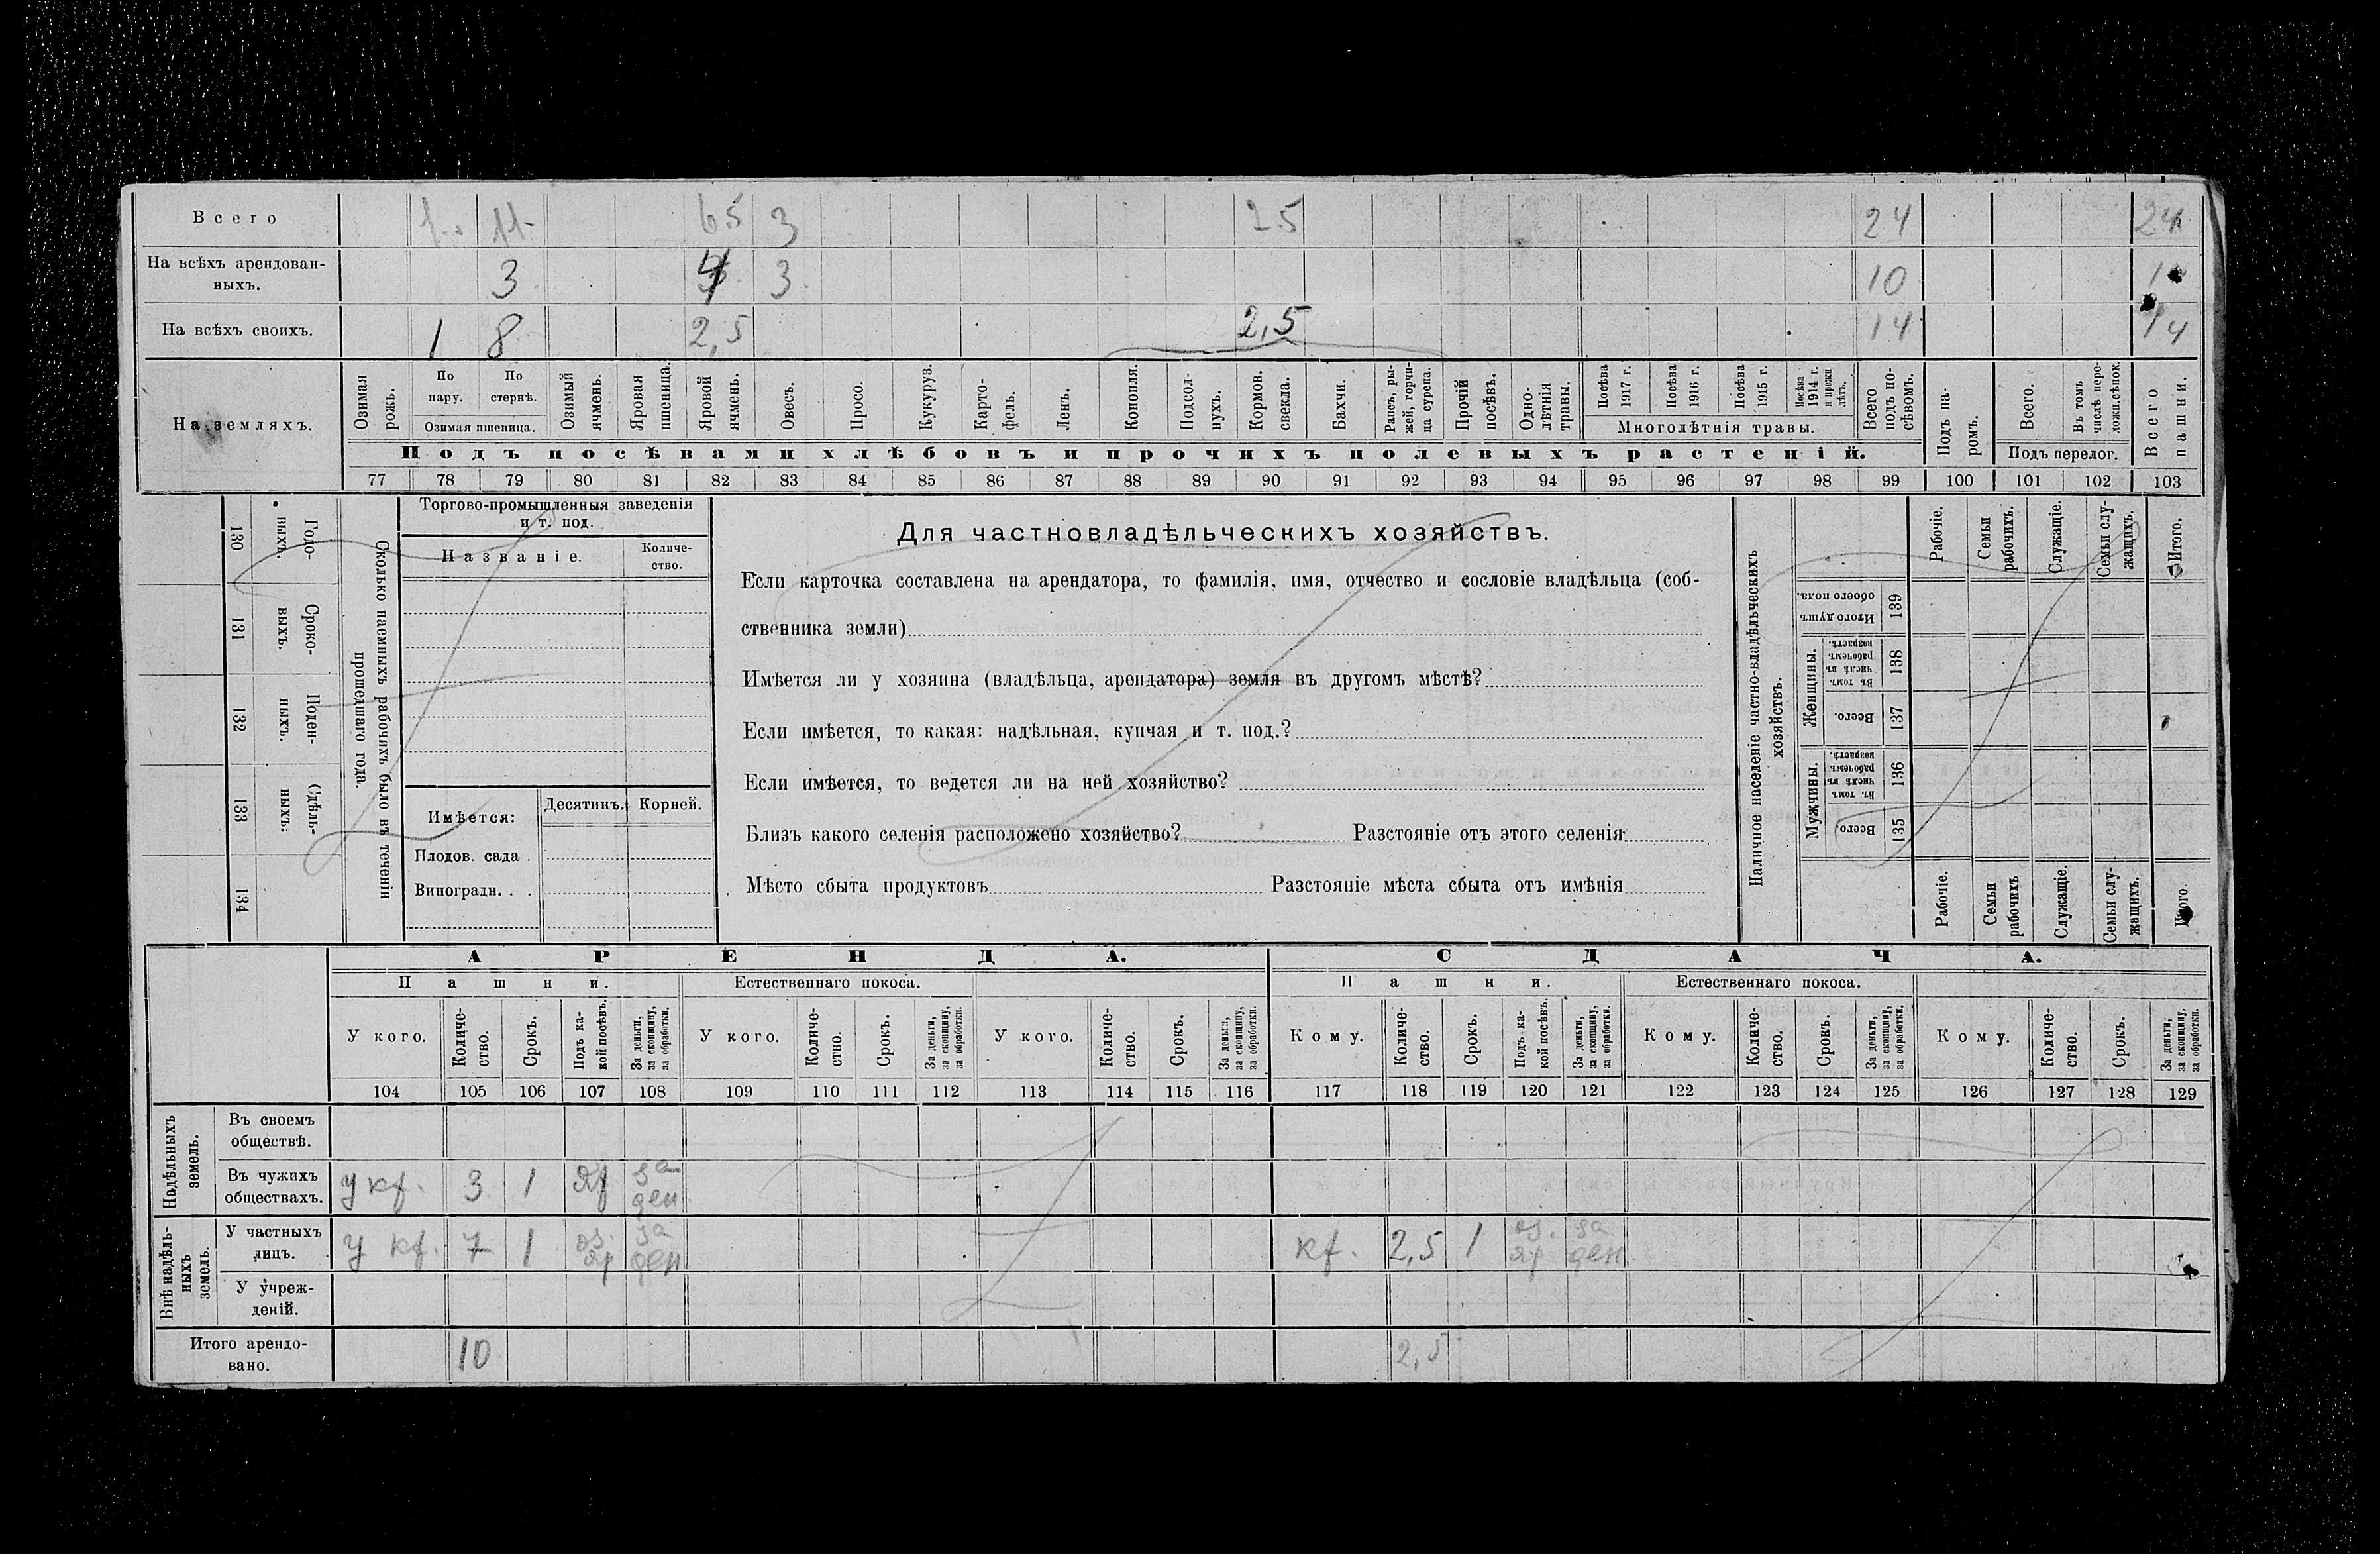 Всего 1 11 6.5 3 2.5 24 24
На всѣхъ арендован-
ныхъ. 3 4 3 10
На всѣхъ своихъ. 1 8 2,5 2,5 14 14
На земляхъ.
Озимая
рожь.
По
пару.
По
стернѣ.
Озимая пшеница.
Озимый
ячмень.
Яровая
пшеница.
Яровой
ячмень.
Овесъ.
Просо.
Кукуруз.
Карто-
фель.
Ленъ.
Конопля.
Подсол-
нухъ.
Кормов.
свекла.
Бахчи.
Рапсъ, ры-
жей, горчи-
ца сурепа.
Прочій
посѣвъ.
Одно-
лѣтнія
травы.
Посѣва
1917 г.
Посѣва
1916 г.
Посѣва
1915 г.
Посѣва
1914 г.
и прежн
лѣтъ.
Многолѣтнія травы.
Всего
подъ по-
сѣвомъ.
Подъ па-
ромъ.
Всего.
Въ томъ
числѣ пере-
ложн.сѣнок.
Подъ перелог.
Всего
пашни.
Подъ посѣвами хлѣбовъ и прочихъ полевыхъ растеній.
77 78 79 80 81 82 83 84 85 86 87 88 89 90 91 92 93 94 95 96 97 98 99 100 101 102 103
Сколько наемныхъ рабочихъ было въ теченіи
прошедшаго года.
Годо-
выхъ.
130
Сроко-
выхъ.
131
Поден-
ныхъ.
132
Сдѣль-
ныхъ.
133
134
Торгово-промышленныя заведенія
и т. под.
Названіе.
Количе-
ство.
Имѣется:
Десятинъ.
Корней.
Плодов. сада .
Виноградн. . .
Для частновладѣльческихъ хозяйствъ.
Если карточка составлена на арендатора, то фамилія, имя, отчество и сословіе владѣльца (соб-
ственника земли)
Имѣется ли у хозяина (владѣльца, арендатора) земля въ другомъ мѣстѣ?
Если имѣется, то какая: надѣльная, купчая и т. под.?
Если имѣется, то ведется ли на ней хозяйство?
Близъ какого селенія расположено хозяйство? Разстояніе отъ этого селенія
Мѣсто сбыта продуктовъ Разстояніе мѣста сбыта отъ имѣнія
Наличное населеніе частно-владѣльческихъ
хозяйствъ.
Рабочіе.
Семьи
рабочихъ.
Служащіе.
Семьи слу-
жащихъ.
Итого.
Итого душъ
обоего пола.
139
Женщины.
Въ томъ
числѣ въ
рабочемъ
возрастѣ.
138
Всего.
137
Мужчины.
Въ томъ
числѣ въ
рабочемъ
возрастѣ.
136
Всего.
135
Рабочіе.
Семьи
рабочихъ
Служащіе.
Семьи слу-
жащихъ.
Итого.
АРЕНДА.
СДАЧА.
Пашни.
Естественнаго покоса.
Пашни.
Естественнаго покоса.
У кого.
Количе-
ство.
Срокъ.
Подъ ка-
кой посѣвъ.
За деньги,
за скопщину,
за обработки.
У кого.
Количе-
ство.
Срокъ.
За деньги,
за скопщину,
за обработки.
У кого.
Количе-
ство.
Срокъ.
За деньги,
за скопщину,
за обработки.
Кому.
Количе-
ство.
Срокъ.
Подъ ка-
кой посѣвъ.
За деньги,
за скопщину,
за обработки.
Кому.
Количе-
ство.
Срокъ.
За деньги,
за скопщину,
за обработки.
Кому.
Количе-
ство.
Срокъ.
За деньги,
за скопщину,
за обработки.
104 105 106 107 108 109 110 111 112 113 114 115 116 117 118 119 120 121 122 123 124 125 126 127 128 129
Надѣльныхъ
земель.
Въ своемъ
обществѣ.
Въ чужихъ
обществахъ.
у кр. 3 1 яр за
ден
Внѣ надѣль-
ныхъ
земель.
У частныхъ
лицъ.
у кр. 7 1 оз. яр за
ден
кр. 2,5 1 оз. яр за
ден
У учреж-
деній.
Итого арендо-
вано. 10 2,5